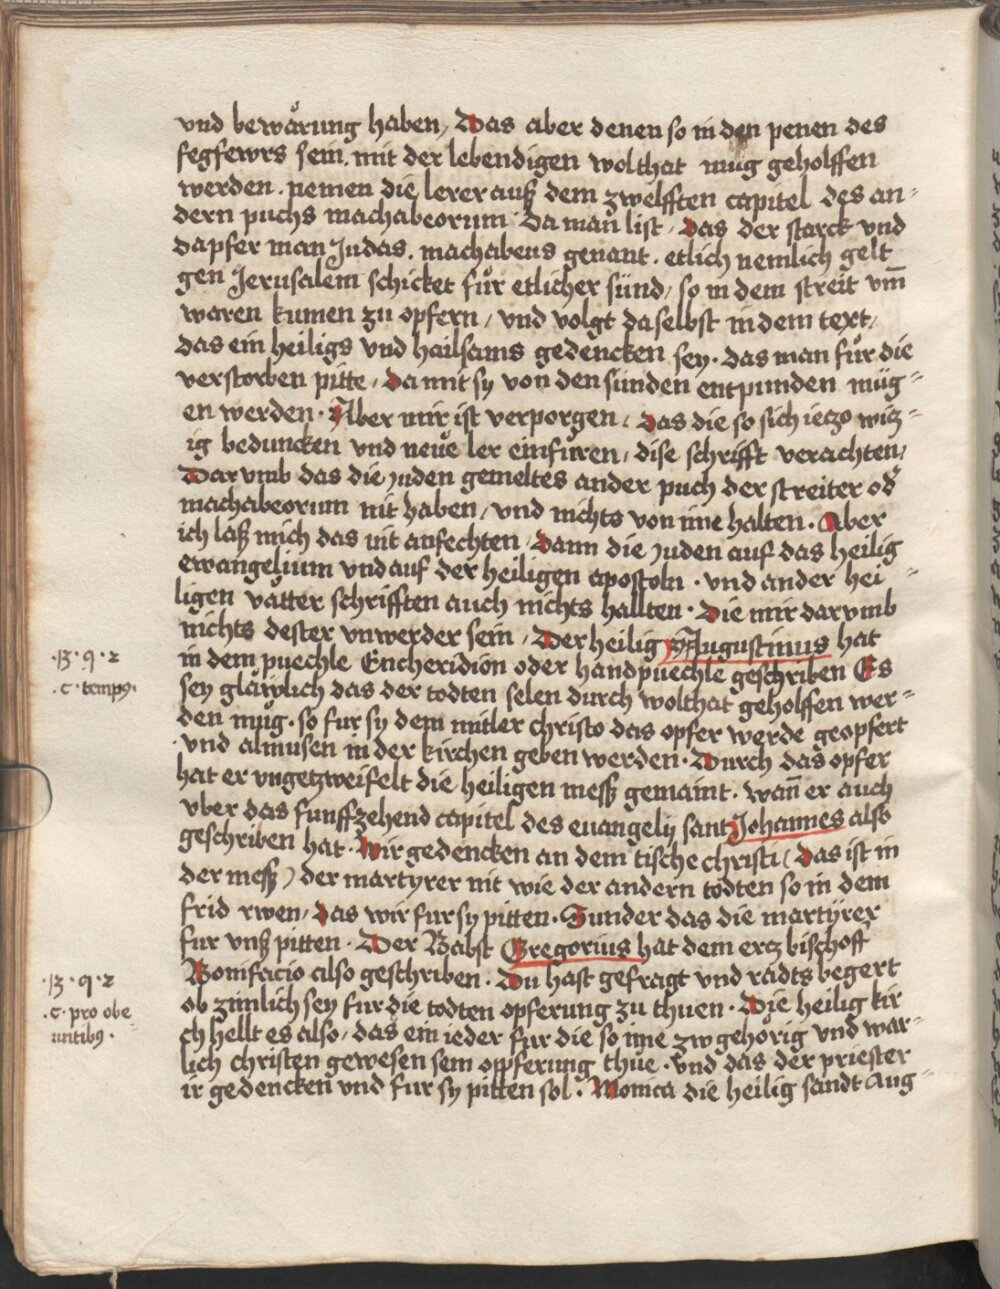 vnd bewårung haben, Das aber denen so in den penen des
fegfewrs sein. mit der lebendigen wolthat mug geholffen
werden. nemen die lerer auß dem zwelfften capitel des an-
dern puchs machabeorum Da man list, Das der starck vnd
dapfer man Judas. machabeus genant. etlich nemlich gelt
gen Jerusalem schicket für etlicher sünd, so in dem streit vm̄
waren kumen zu opfern, vnd volgt daselbst in dem text,
das ein heiligs vnd hailsams gedencken sey. das man für die
verstorben pitte, Damit sy von den sünden entpunden müg-
en werden. Aber mir ist verporgen, Das die so sich ietzo witz-
ig beduncken vnd neue ler einfüren, dise schrifft verachten,
Darvmb das die juden gemeltes ander puch der streiter od̄
machabeorum nit haben, vnd nichts von ime halten. Aber
ich laß mich das nit anfechten, Dann die juden auf das heilig
ewangelium vnd auf der heiligen aposteln. vnd ander hei-
ligen våtter schrifften auch nichts hallten. Die mir darvmb
nichts dester vnwerder sein, Der heilig Augustinus hat
.13.q.2
.c. temp9.
in dem puechle Encheridion oder handpuechle geschriben Es
sey gläwlich das der todten selen durch wolthat geholffen wer-
den mug. so fur sy dem mitler christo das opfer werde geopfert
vnd almusen in der kirchen geben werden. Durch das opfer
hat er vngetzweifelt die heiligen meß gemaint. wan̄ er auch
vber das funffzehend capitel des euangelij sant Johannes also
geschriben hat. Wir gedencken an dem tische christi (Das ist in
der meß) der martyrer nit wie der andern todten so in dem
frid rwen, Das wir fur sy pitten. Sunder das die martyrer
fur vnß pitten. Der Babst Gregorius hat dem ertz bischoff
.13.q.2
.c. pro obe
untib9.
Bonifacio also geschriben. Du hast gefragt vnd radts begert
ob zimlich sey fur die todten opferung zu thuen. Die heilig kir
ch hellt es also, das ein ieder fur die so ime zw gehörig vnd war-
lich christen gewesen sein opferung thue. vnd das der priester
ir gedencken vnd fur sy pitten sol. Monica die heilig sandt Aug-